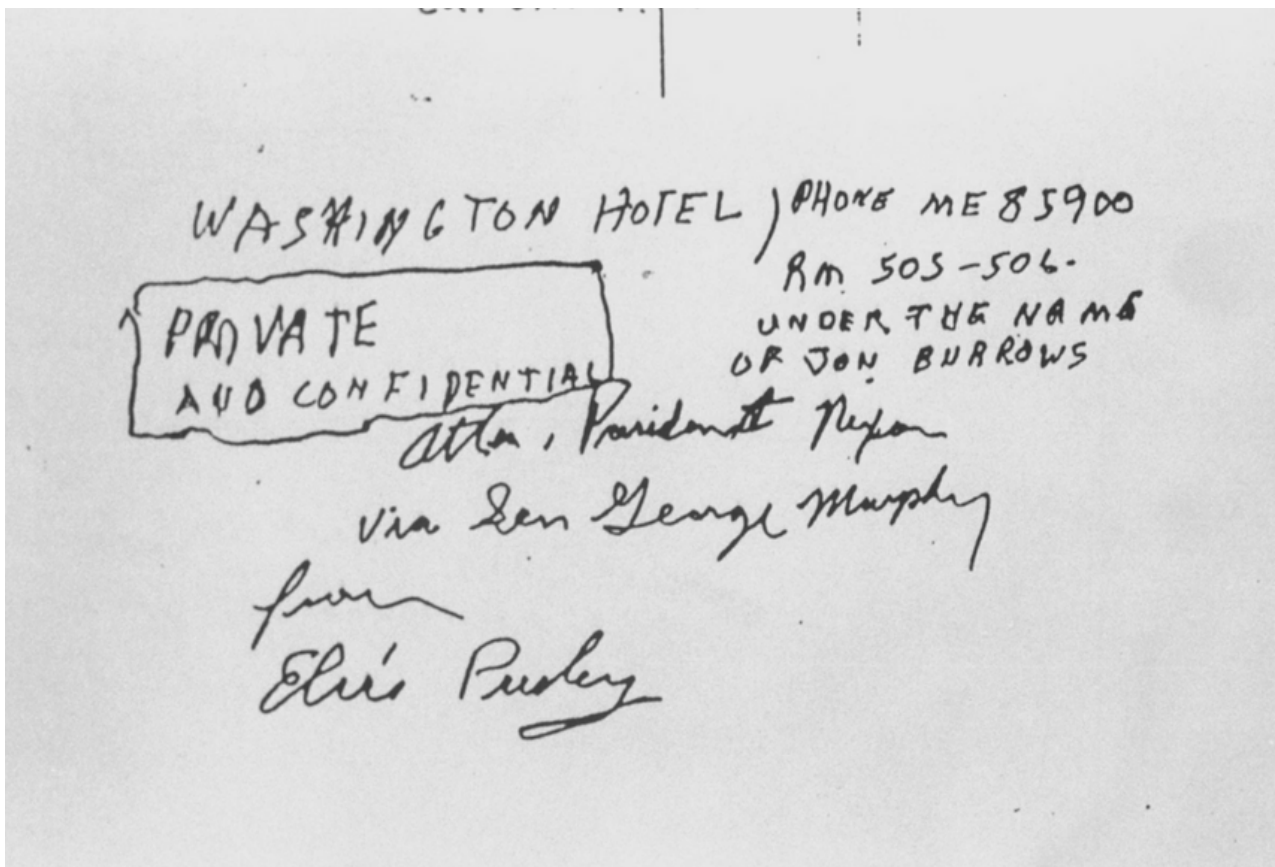 WASHINGTON HOTEL) PHONE ME 85900
RM 505-506.
UNDER THE NAME
OF JON BURROWS
PRIVATE
AND CONFIDENTIAL
Attn, President Nixon
via Sen George Murphy
from
Elvis Presley